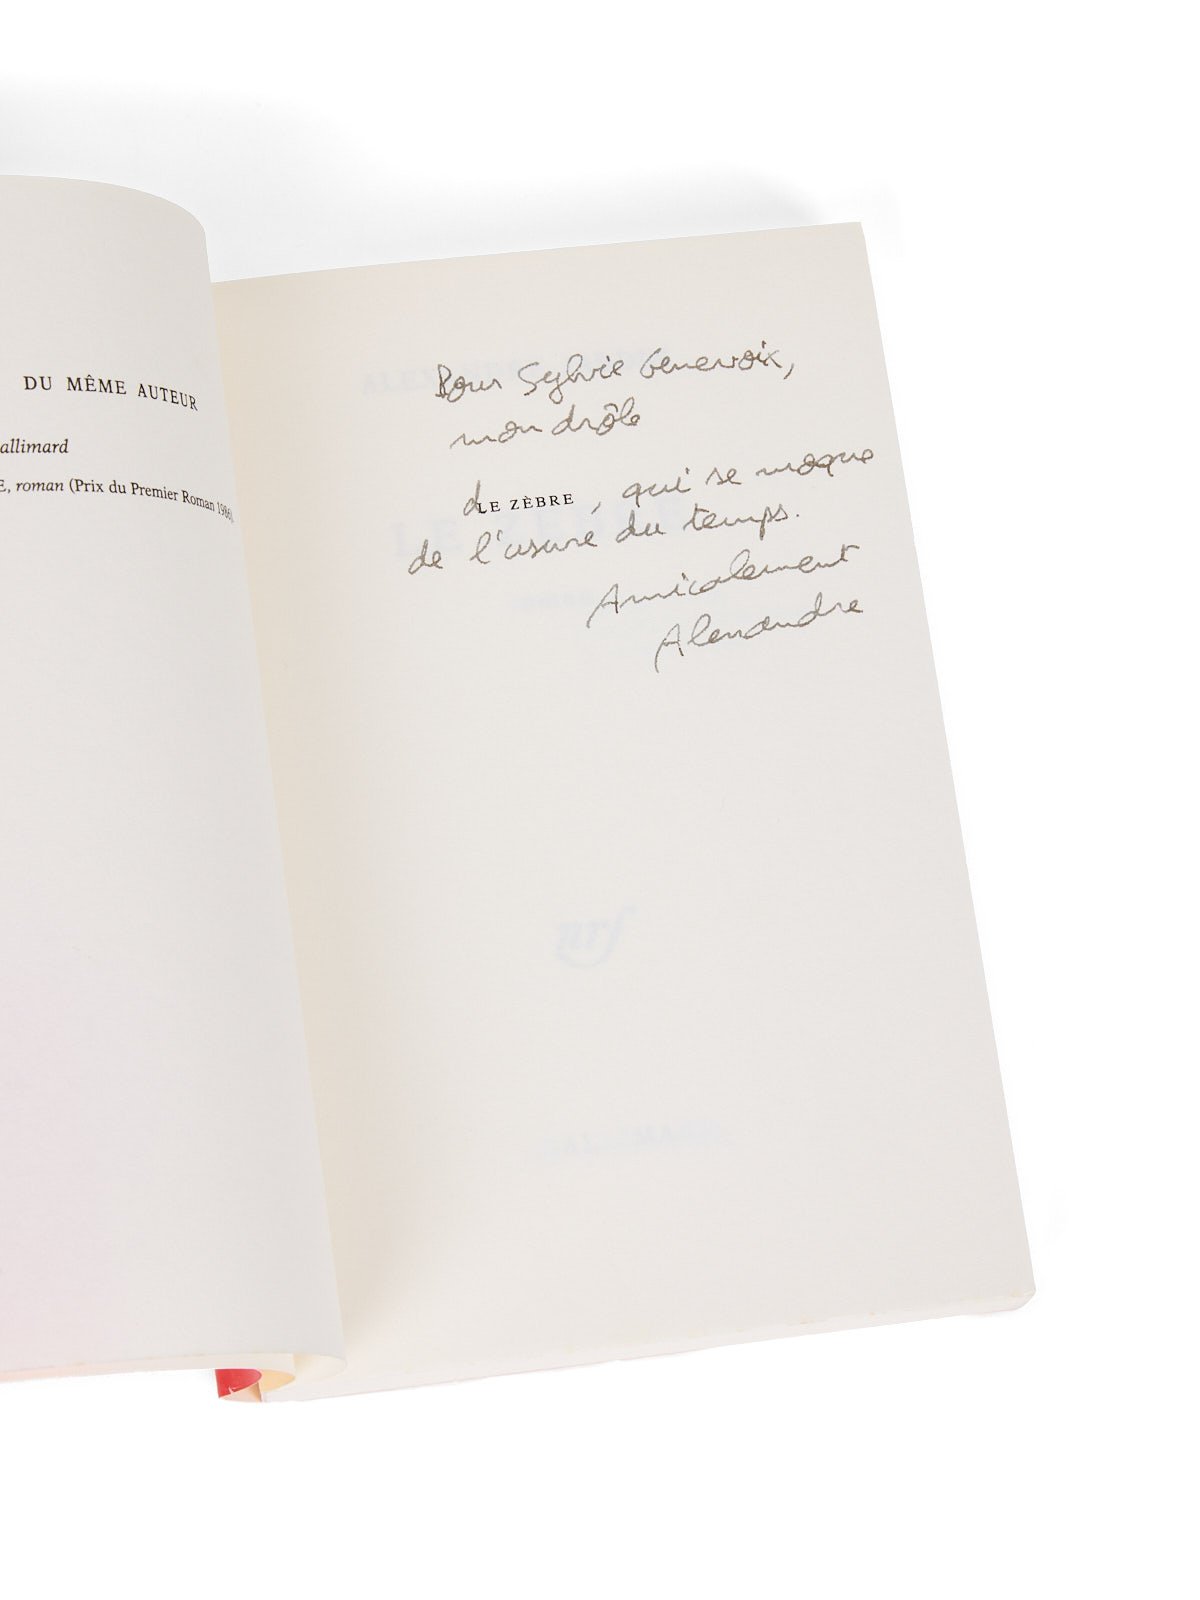 DU MÊME AUTEUR
allimard
E, roman (Prix du Premier Roman 1986).
Pour Sylvie Genevoix,
mon drôle
de LE ZÈBRE, qui se moque
de l'usure du temps.
Amicalement
Alexandre
LE ZÈBRE
nrf